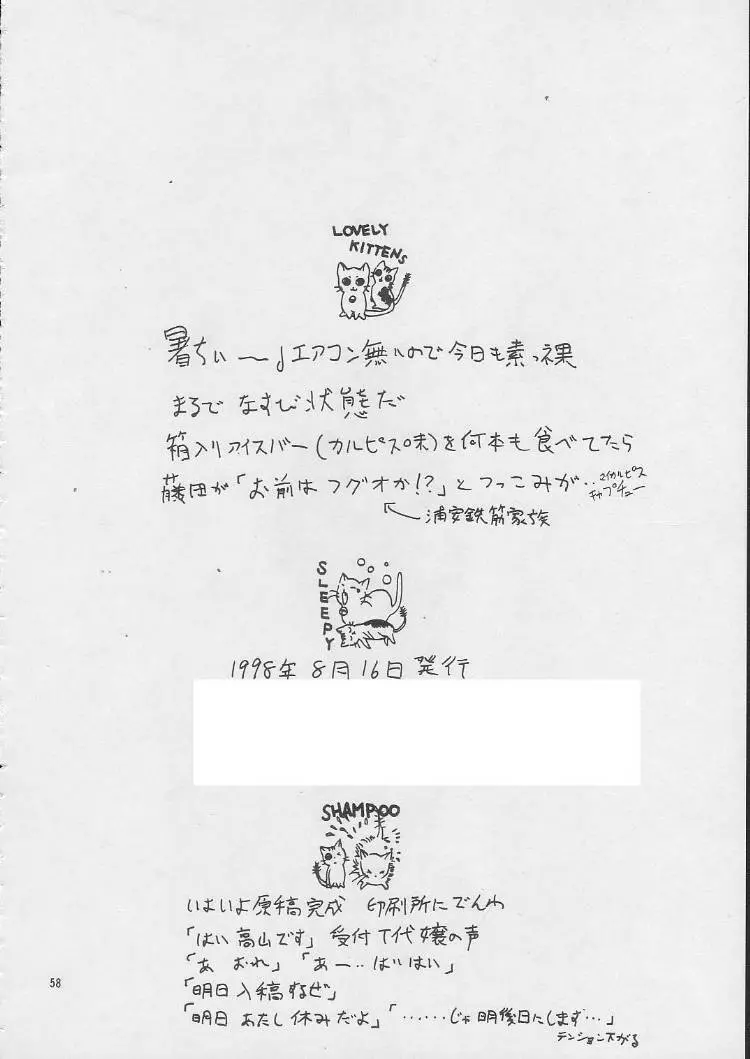 LOVELY
KITTENS
暑ちぃ〜」エアコン無いので今日も素っ裸
まるで なすび状態だ
箱入りアイスバー(カルピス味)を何本も食べてたら
藤田が「お前は フグオか!?」とつっこみが‥
カルピス
チャプチュー
浦安鉄筋家族
SLEEPY
1998年 8月16日 発行
SHAMPOO
いよいよ原稿完成 印刷所にでんわ
「はい 高山です」 受付 T代嬢の声
「あ おれ」「あー‥はいはい」
「明日 入稿するぜ」
「明日 あたし 休みだよ」「‥‥‥じゃ 明後日にします…」
テンション下がる
58